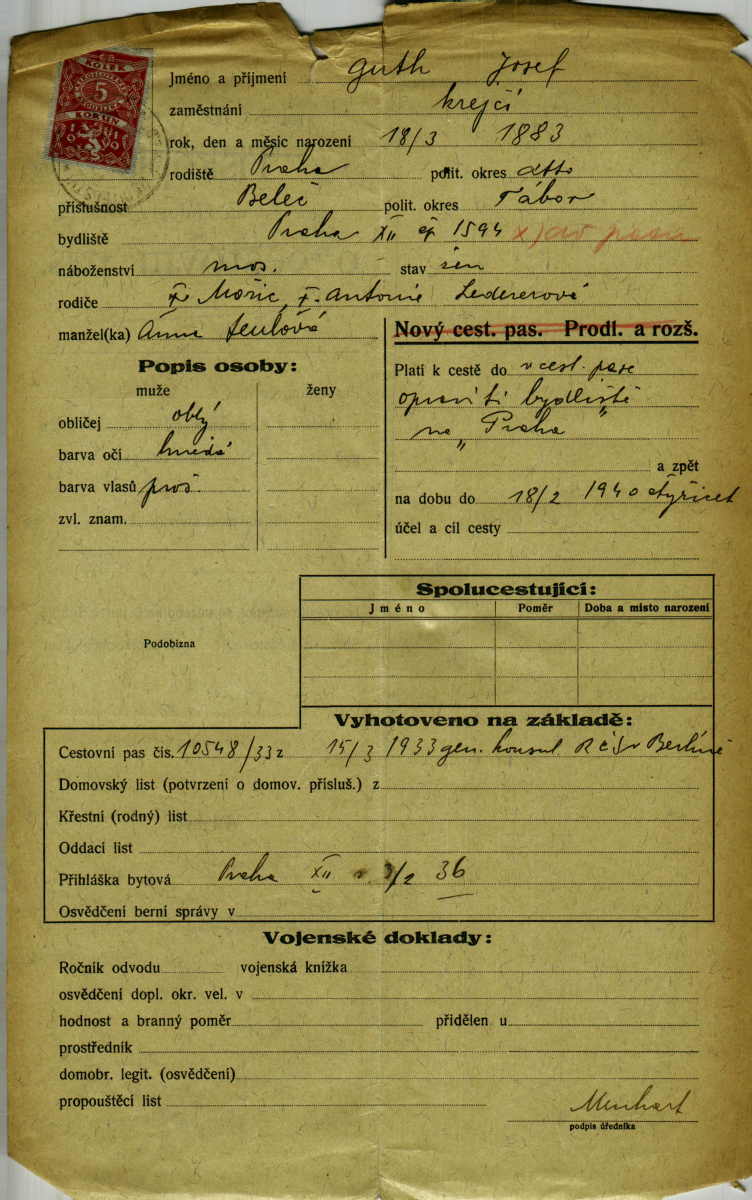 KOLEK
5
KORUN
Jméno a příjmení Guth Josef
zaměstnání krejčí
rok, den a měsíc narození 18/3 1883
rodiště Praha polit. okres dtto
příslušnost Beleč polit. okres Tábor
bydliště Praha XII čp 1594
náboženství mos. stav žen
rodiče Mořic, Antonie Ledererová
manžel(ka) Anna
Nový cest. pas. Prodl. a rozš.
Popis osoby:
muže ženy
obličej oblý
barva očí hnědá
barva vlasů proš.
zvl. znam.
Platí k cestě do v cest. pase
opraviti bydliště
na „Praha"
a zpět
na dobu do 18/2 1940 čtyřicet
účel a cíl cesty
Podobizna
Spolucestující:
Jméno Poměr Doba a místo narození
Vyhotoveno na základě:
Cestovní pas čís. 10548/33 z 15/3 1933 gen. konsul RČS v Berlíně
Domovský list (potvrzení o domov. přísluš.) z
Křestní (rodný) list
Oddací list
Přihláška bytová Praha XII 3/2 36
Osvědčení berní správy v
Vojenské doklady:
Ročník odvodu vojenská knížka
osvědčení dopl. okr. vel. v
hodnost a branný poměr přidělen u
prostředník
domobr. legit. (osvědčení)
propouštěcí list
Menhart
podpis úředníka